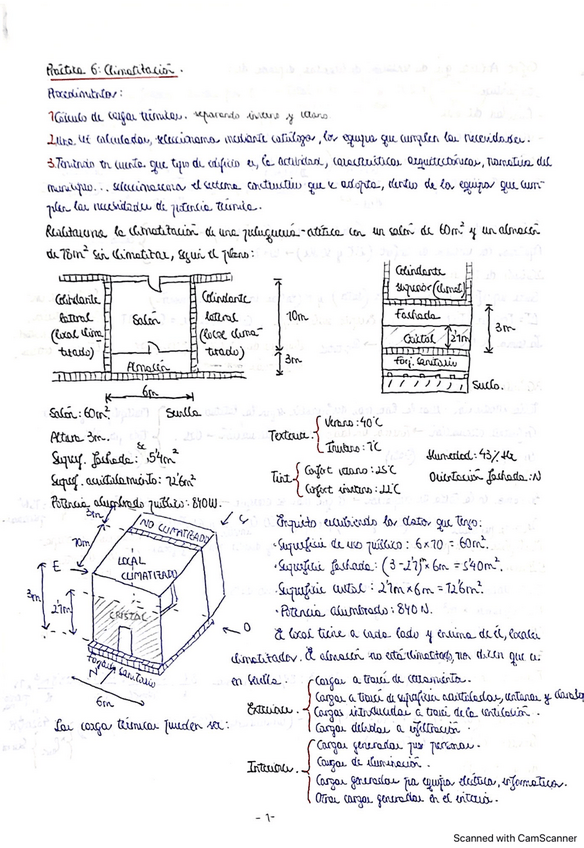 Práctica 6: Climatización.
Procedimientos:
1. Cálculo de cargas térmicas. separando invierno y verano
2. Una vez calculadas, seleccionamos mediante catálogos, los equipos que cumplen las necesidades.
3. Teniendo en cuenta que tipo de edificio es, la actividad, características arquitectónicas, normativa del
municipio... seleccionaremos el sistema constructivo que se adopta, dentro de los equipos que cum-
plen las necesidades de potencia térmica.
Realizaremos la climatización de una peluquería-estética con un salón de 60m² y un almacén
de 18m² sin climatizar, según el plano:
Colindante
lateral
(local clima-
tizado)
Salón
Almacén
Colindante
lateral
(local clima-
tizado)
10m
3m
6m
Colindante
superior (climat)
Fachada
Cristal
2'1m
3m
Forj. sanitario
Suelo.
Salón: 60m².
Sevilla
Altura 3m.
Superf. fachada: 5'4m²
Superf. acristalamiento: 12'6m²
Potencia alumbrado público: 840W.
Texterior
Verano: 40°C
Invierno: 7°C
Tint
Confort verano: 25°C
Confort invierno: 22°C
Humedad: 43% Hr
Orientación fachada: N
3m
NO CLIMATIZADO
S
10m
LOCAL
CLIMATIZADO
E
3m
2'1m
CRISTAL
O
Forjado sanitario
N
6m
Empiezo escribiendo los datos que tengo:
· Superficie de uso público: 6 x 10 = 60m².
· Superficie fachada: (3 - 2'1)m x 6m = 5'40m².
· Superficie cristal: 2'1m x 6m = 12'6m².
· Potencia alumbrado: 840 W.
El local tiene a cada lado y encima de él, locales
climatizados. El almacén no está climatizado, nos dicen que es
en Sevilla.
Las cargas térmicas pueden ser:
Exteriores
Cargas a través de cerramiento.
Cargas a través de superficies acristaladas, ventanas y
Cargas introducidas a través de la ventilación.
Cargas debidas a infiltración.
Interiores
Cargas generadas por personas.
Cargas de iluminación.
Cargas generadas por equipos eléctricos, informáticos.
Otras cargas generadas en el interior.
- 1 -
Scanned with CamScanner